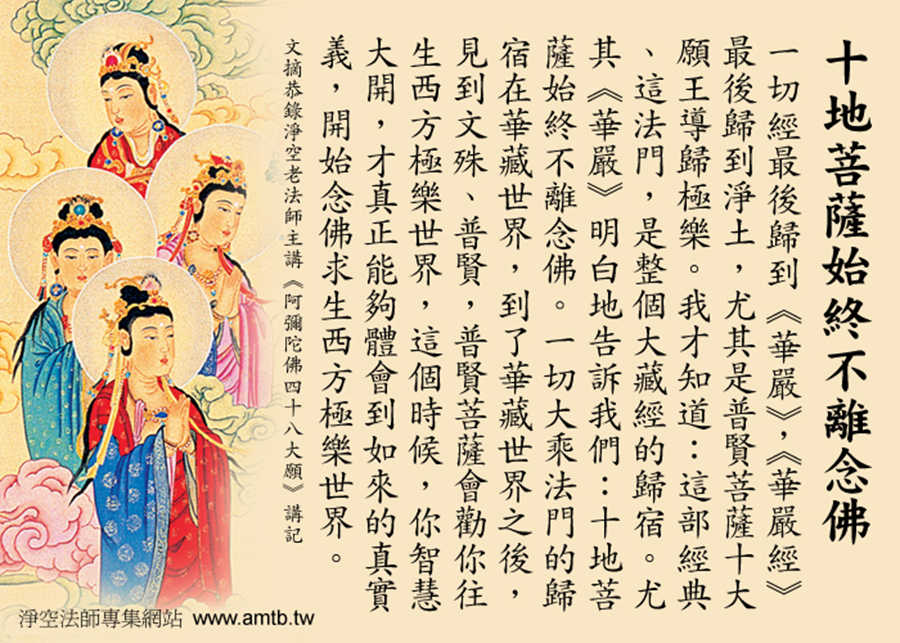 十地菩薩始終不離念佛
一切經最後歸到《華嚴》,《華嚴經》
最後歸到淨土，尤其是普賢菩薩十大
願王導歸極樂。我才知道：這部經典
、這法門，是整個大藏經的歸宿。尤
其《華嚴》明白地告訴我們：十地菩
薩始終不離念佛。一切大乘法門的歸
宿在華藏世界，到了華藏世界之後，
見到文殊、普賢，普賢菩薩會勸你往
生西方極樂世界，這個時候，你智慧
大開，才真正能夠體會到如來的真實
義，開始念佛求生西方極樂世界。
文摘恭錄淨空老法師主講《阿彌陀佛四十八大願》講記
淨空法師專集網站 www.amtb.tw